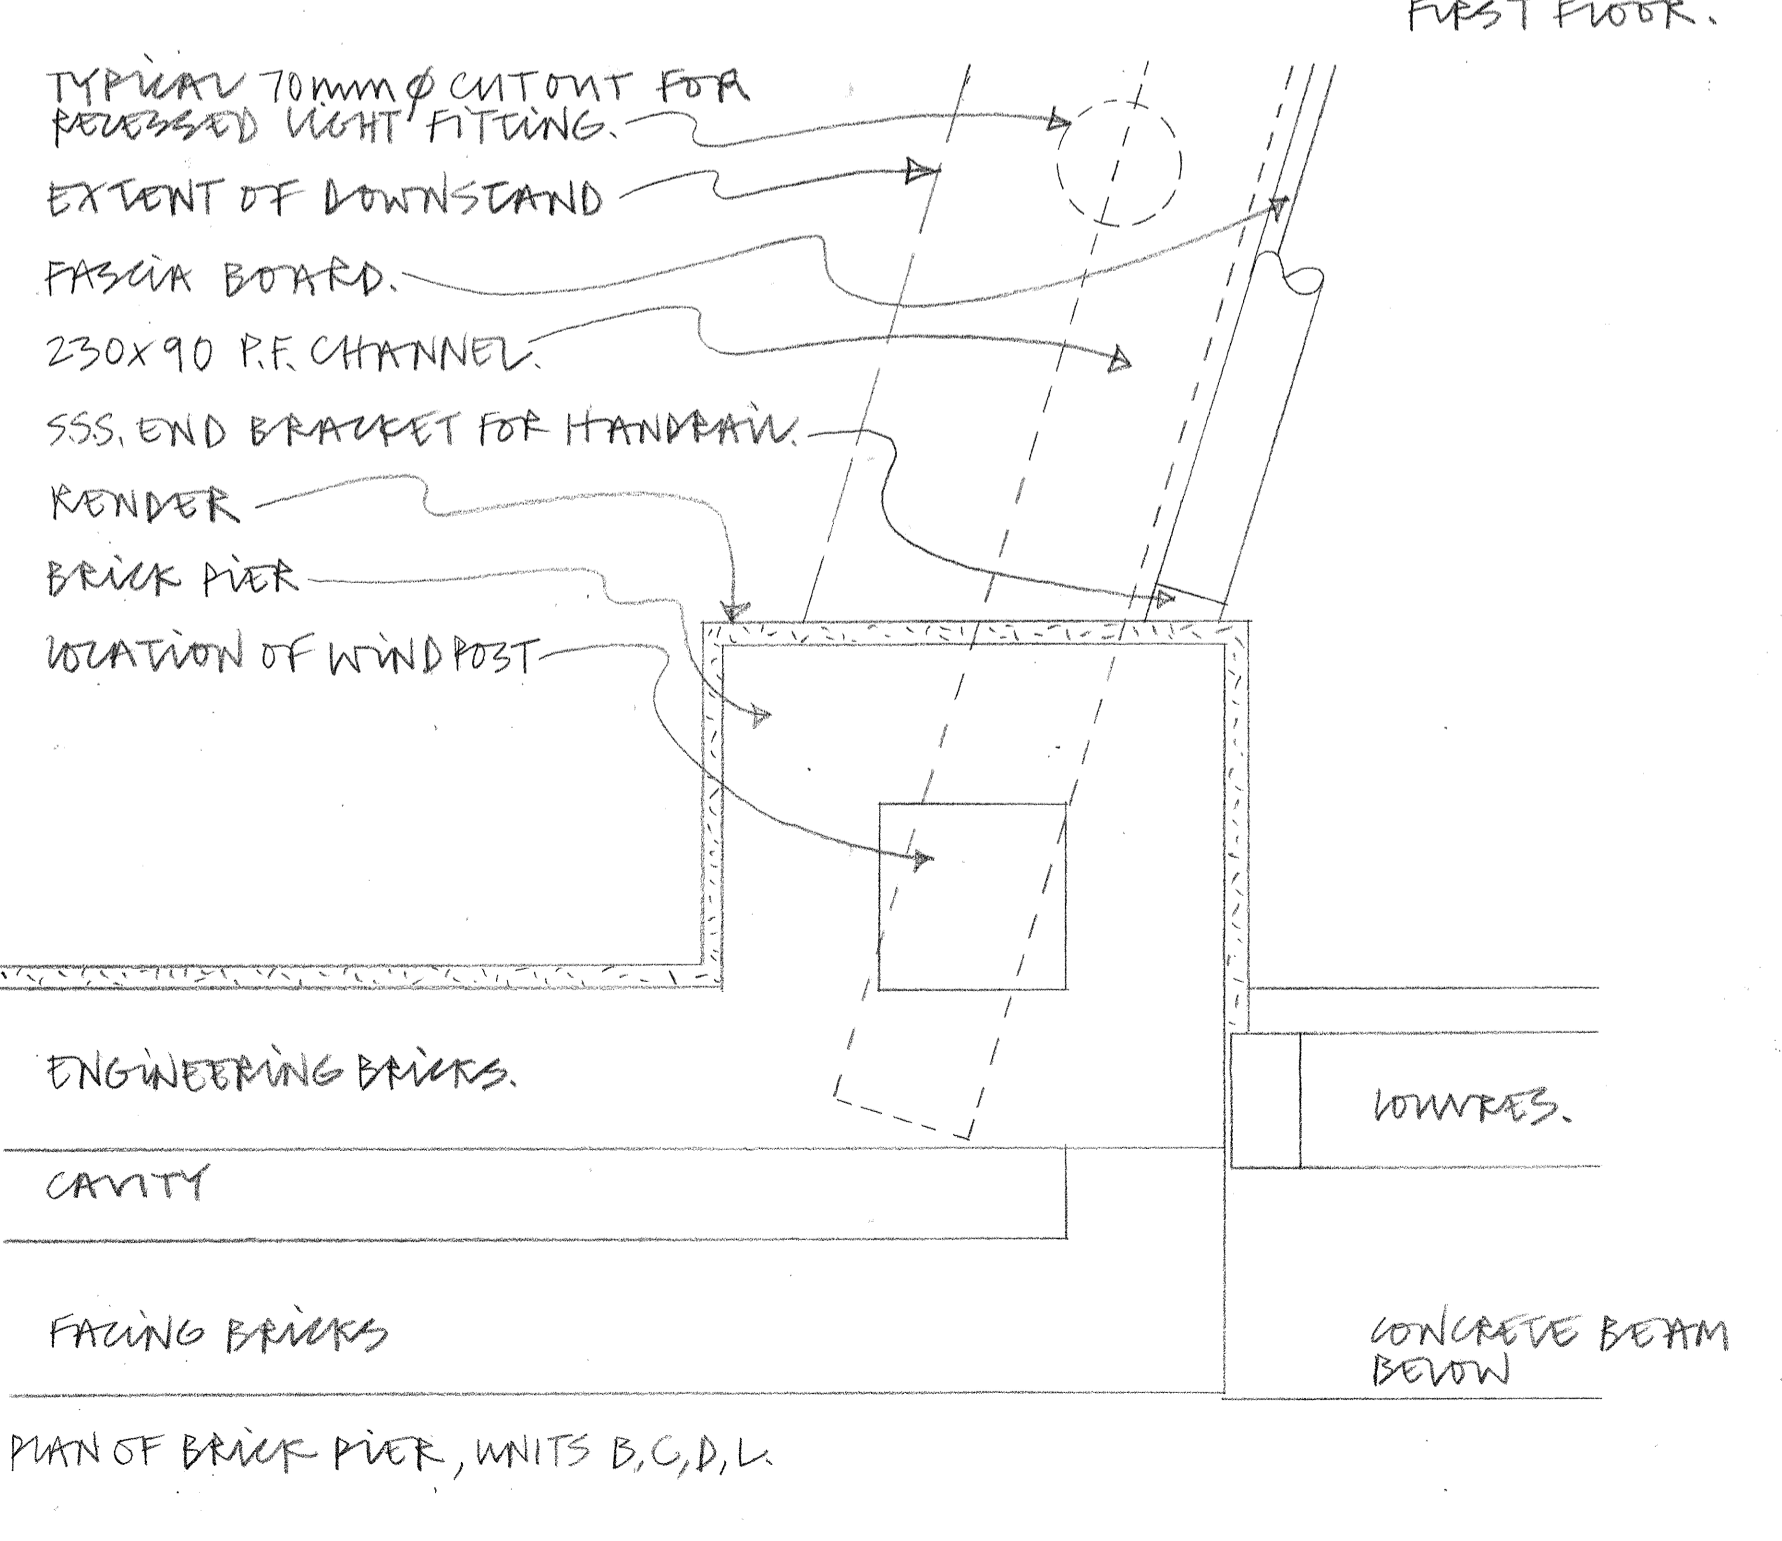 FIRST FLOOR.
TYPICAL 70mm φ CUTOUT FOR
RECESSED LIGHT FITTING.
EXTENT OF DOWNSTAND
FASCIA BOARD.
230x90 P.F. CHANNEL.
S.S.S. END BRACKET FOR HANDRAIL.
RENDER
BRICK PIER
LOCATION OF WIND POST
ENGINEERING BRICKS.
LOUVRES.
CAVITY
FACING BRICKS
CONCRETE BEAM
BELOW
PLAN OF BRICK PIER, UNITS B,C,D,L.